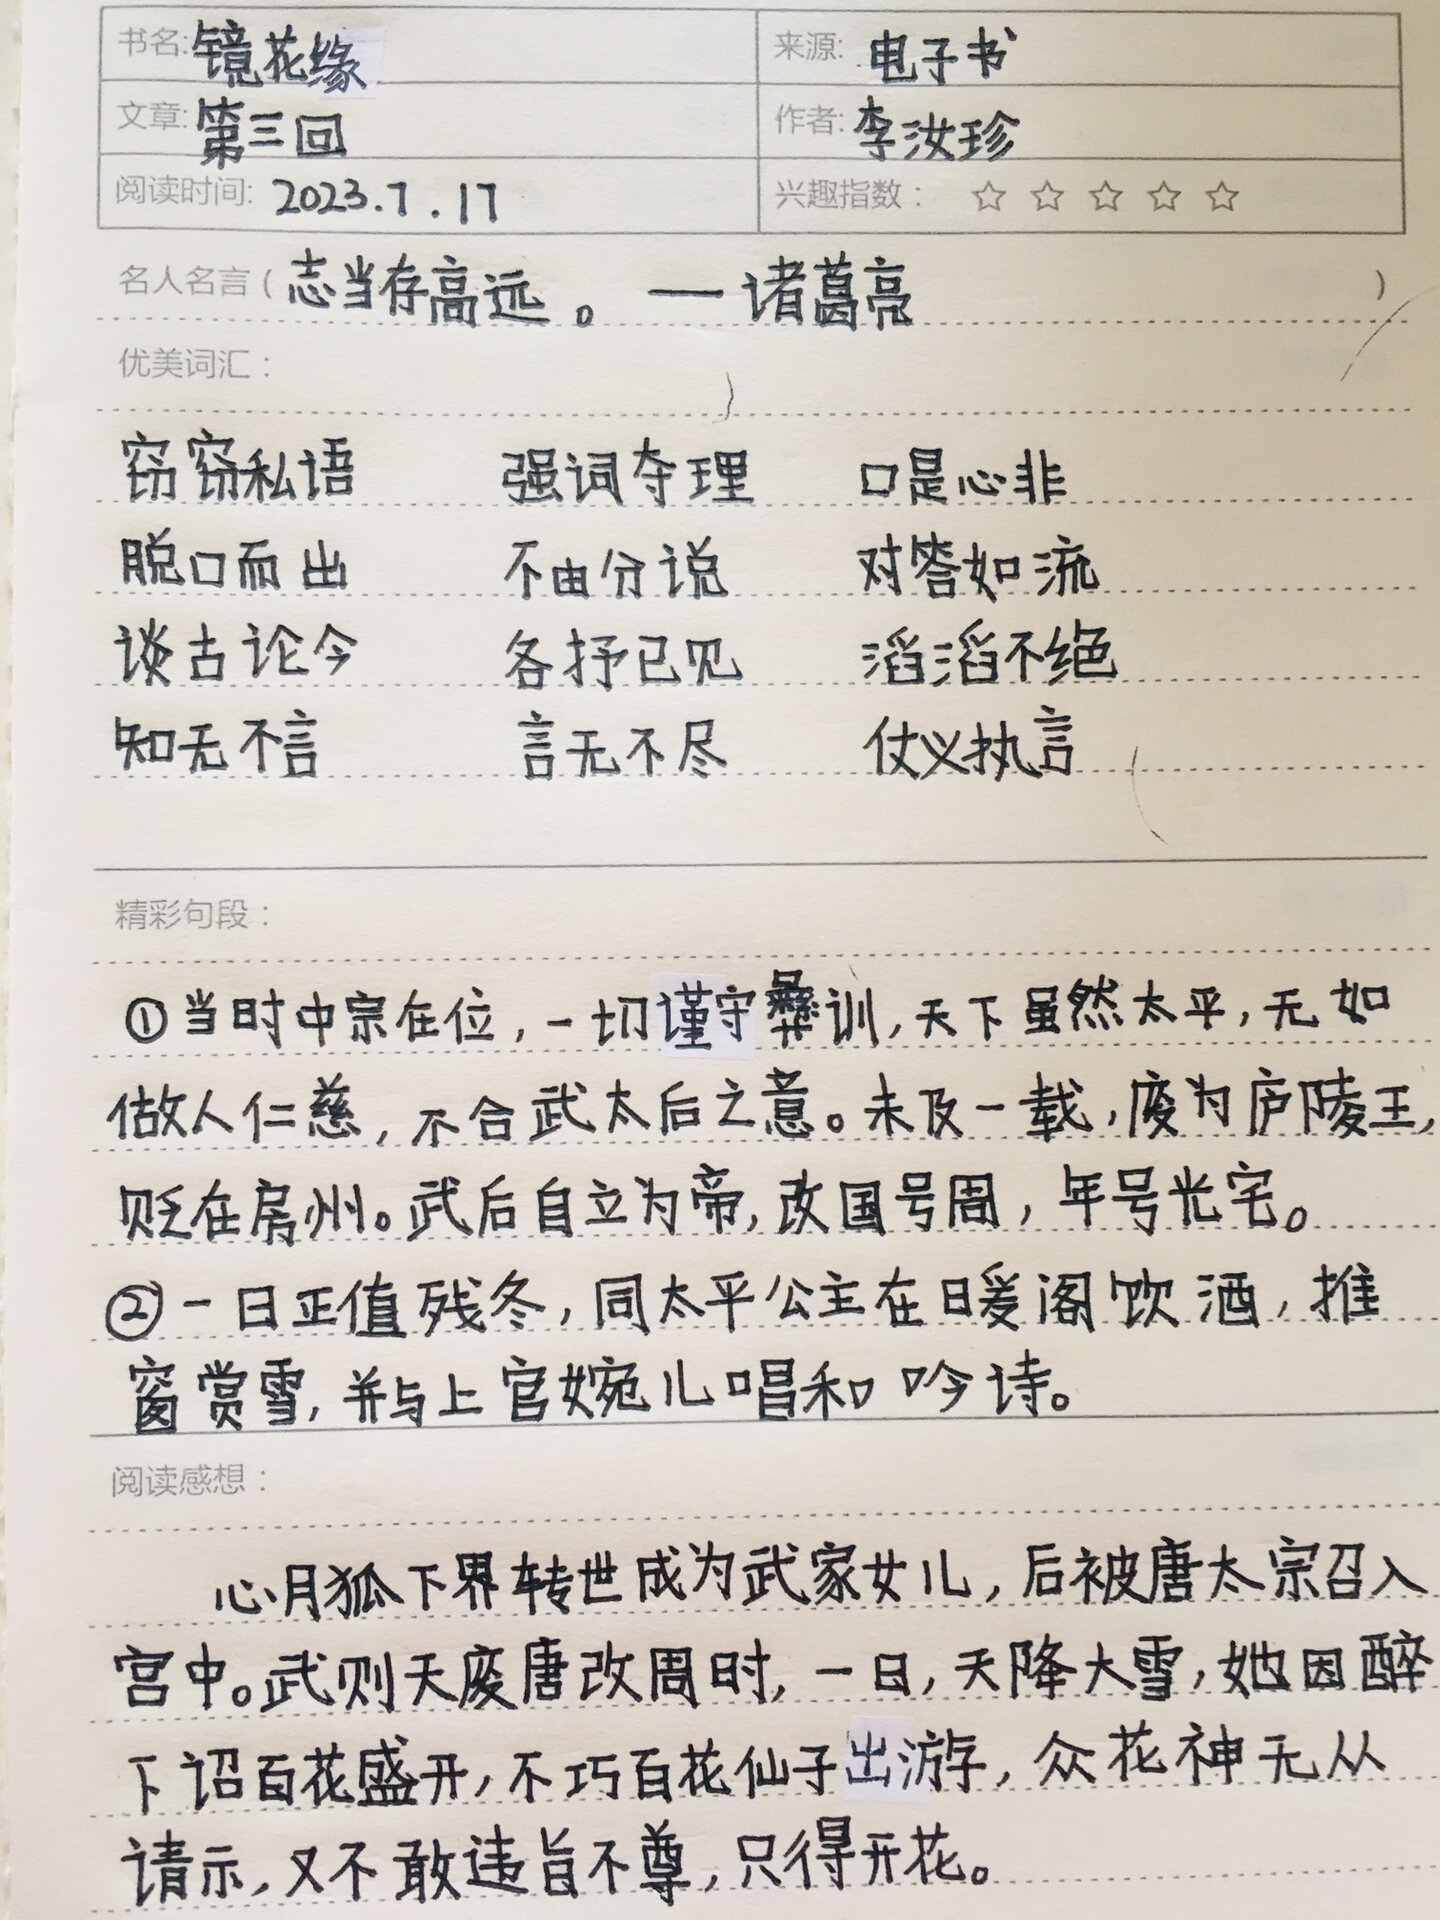 书名: 镜花缘 来源: 电子书
文章: 第三回 作者: 李汝珍
阅读时间: 2023.7.17 兴趣指数： ☆ ☆ ☆ ☆ ☆
名人名言（志当存高远。 — 诸葛亮）
优美词汇：
窃窃私语 强词夺理 口是心非
脱口而出 不由分说 对答如流
谈古论今 各抒已见 滔滔不绝
知无不言 言无不尽 仗义执言
精彩句段：
①当时中宗在位，一切谨守彝训，天下虽然太平，无如
做人仁慈，不合武太后之意。未及一载，废为庐陵王，
贬在房州。武后自立为帝，改国号周，年号光宅。
②一日正值残冬，同太平公主在暖阁饮酒，推
窗赏雪，并与上官婉儿唱和吟诗。
阅读感想：
心月狐下界转世成为武家女儿，后被唐太宗召入
宫中。武则天废唐改周时，一日，天降大雪，她因醉
下诏百花盛开，不巧百花仙子出游，众花神无从
请示，又不敢违旨不尊，只得开花。